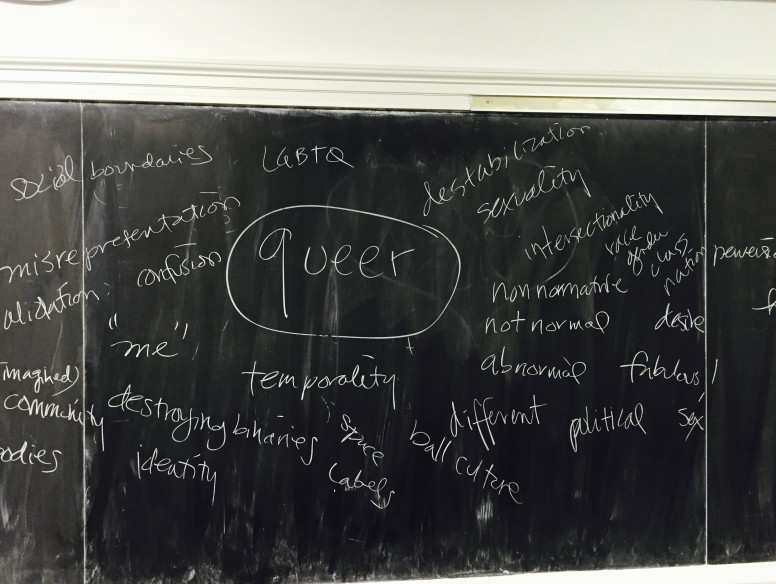 social boundaries
LGBTQ
destabilization
sexuality
misrepresentation
confusion
queer
intersectionality
race
gender
class
nation
alidation:
"me"
non normative
not normal
desire
imagined)
community
temporality
abnormal
fabulous!
destroying binaries
space
different
political
sex
odies
identity
labels
ball culture